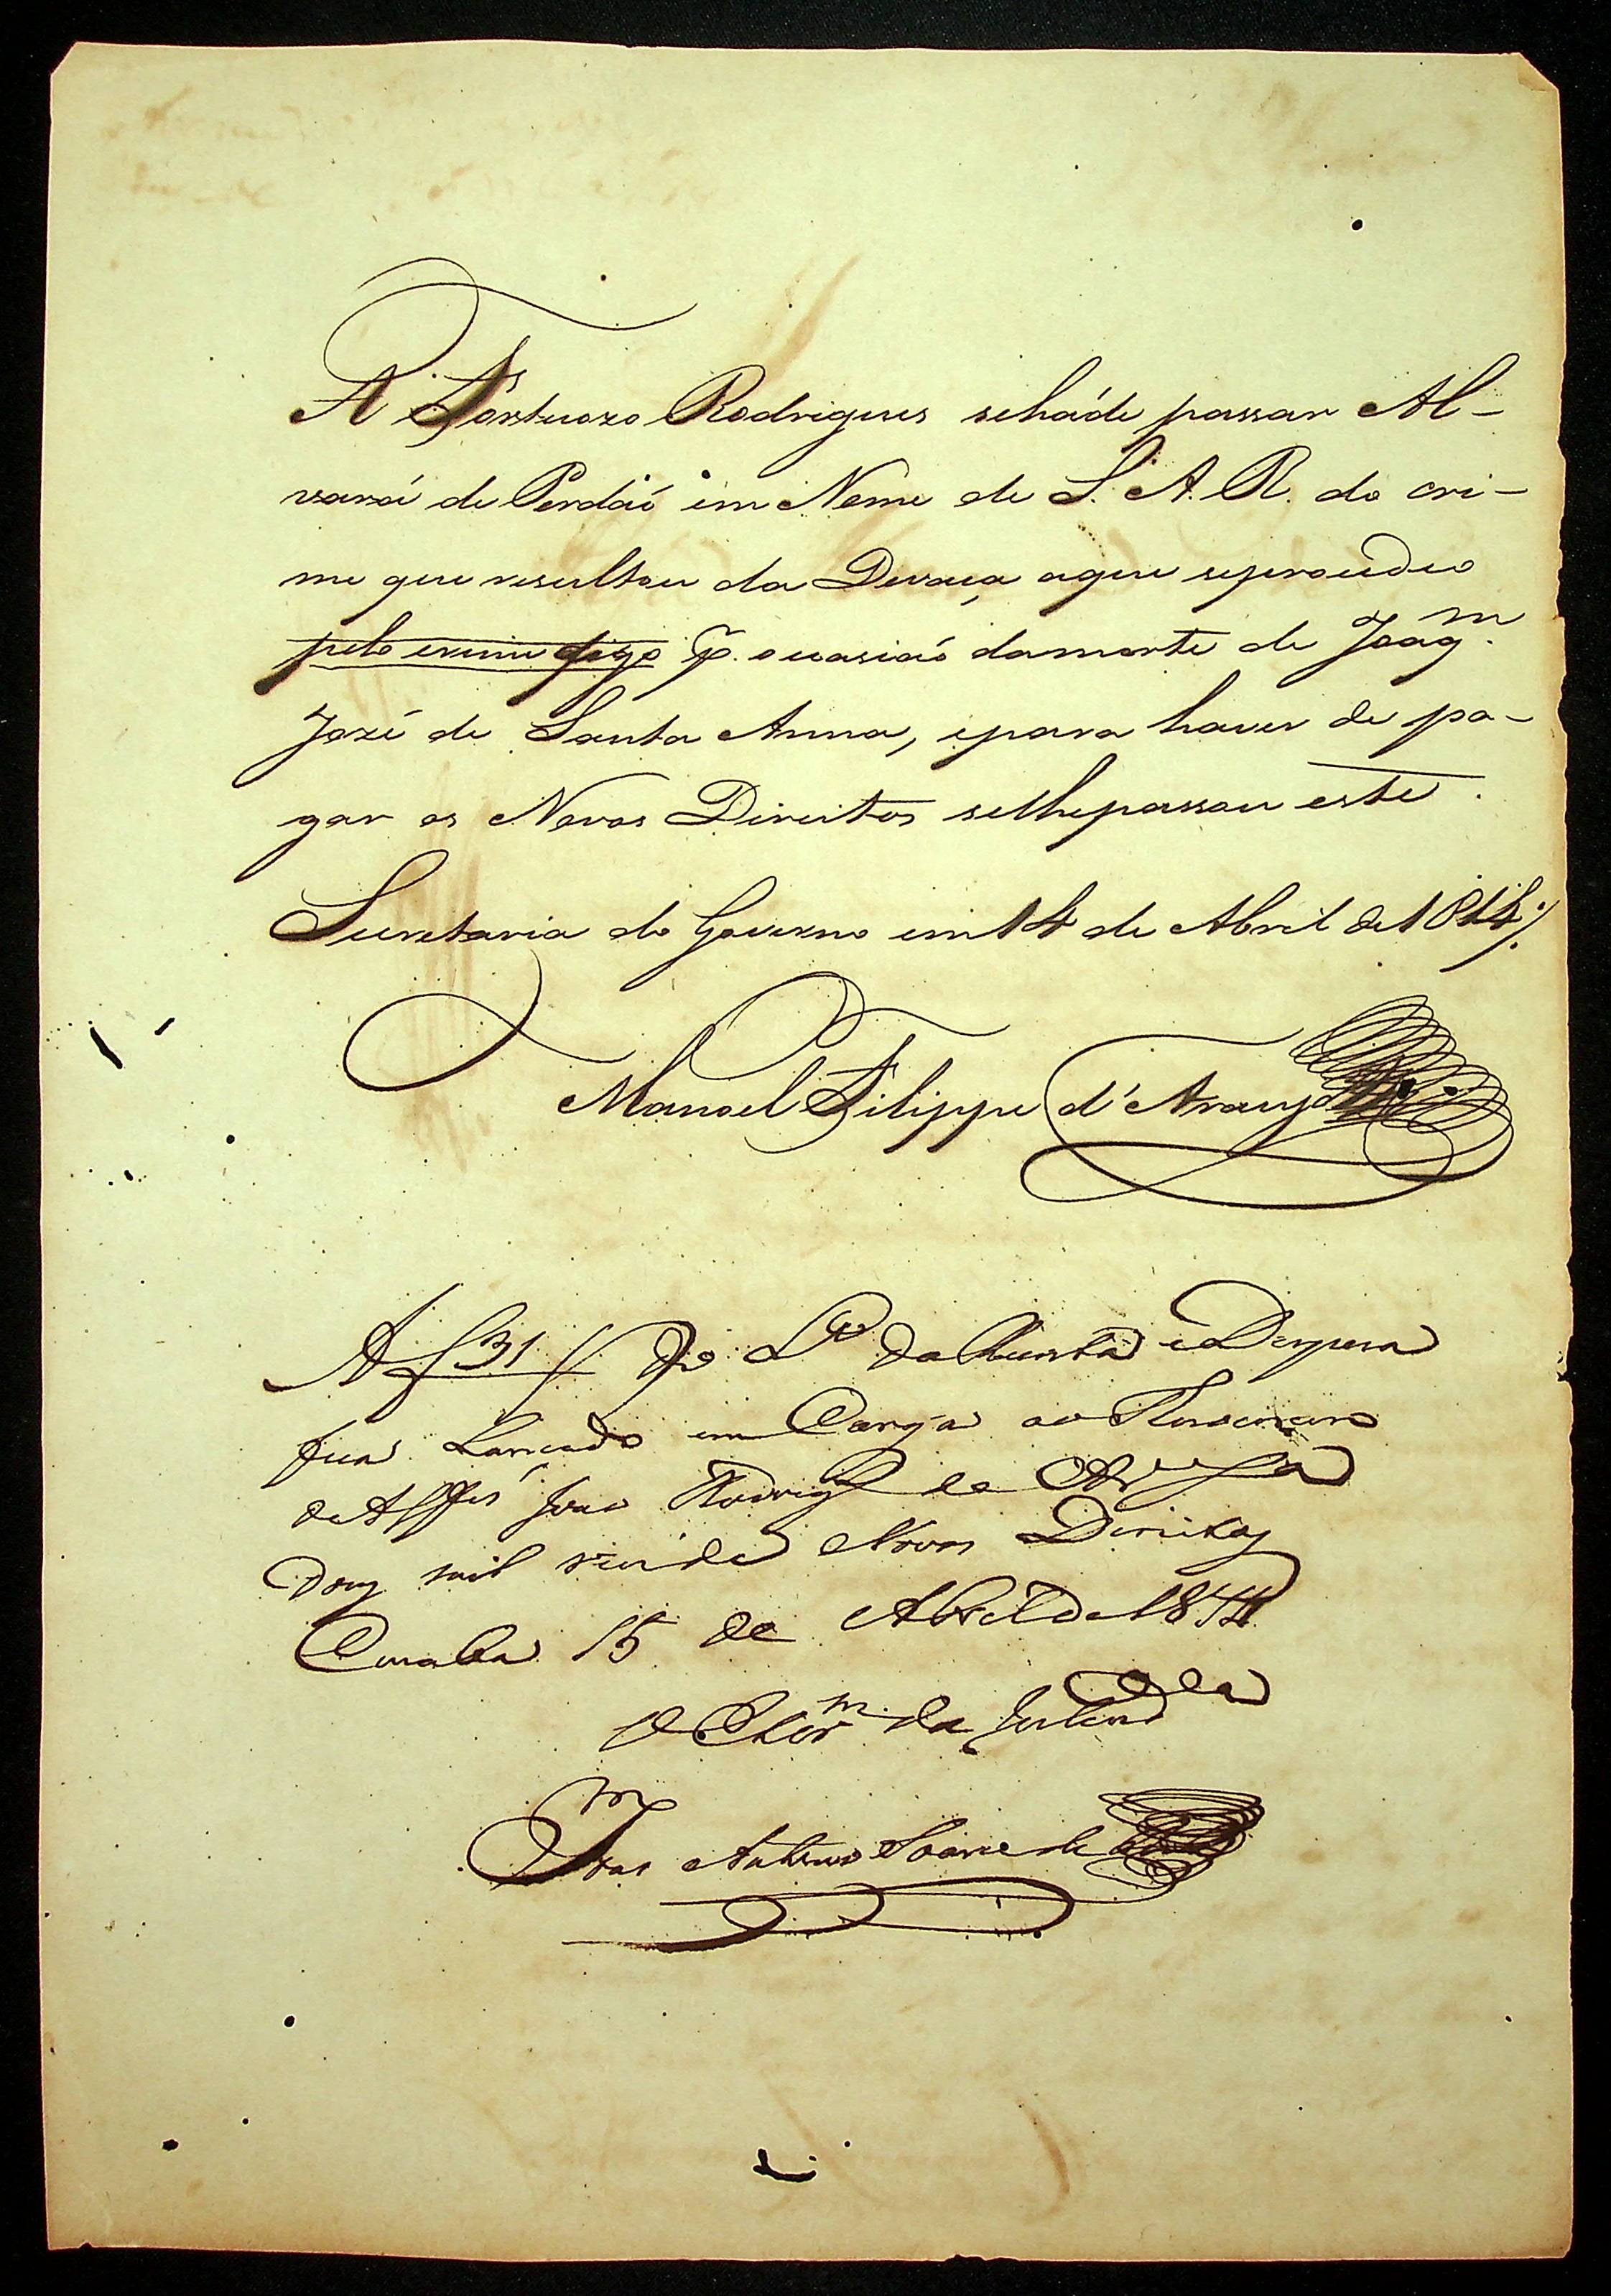 A Fortuozo Rodrigues seháde passar Al-
vará de Perdaõ em Nome de S. A. R. do cri-
me que resultou da Devaça aque seprocedeo
pelo crime digo p. occasiaõ damorte de Joaq.m
Jozé de Santa Anna, epara haver de pa-
gar os Novos Direitos selhepassou este.
Secretaria do Governo em 14 de Abril de 1814
Manoel Filippe d'Araujo
A f 31 do L.o da Receita e Despeza
fica Lancado em Carga ao Thesoureiro
o Alferes João Rodrig de Ar.o a
dous mil reis de Novos Direitos
Cuiaba 15 de Abril de 1814
O Escr.m da
Antonio Soares de